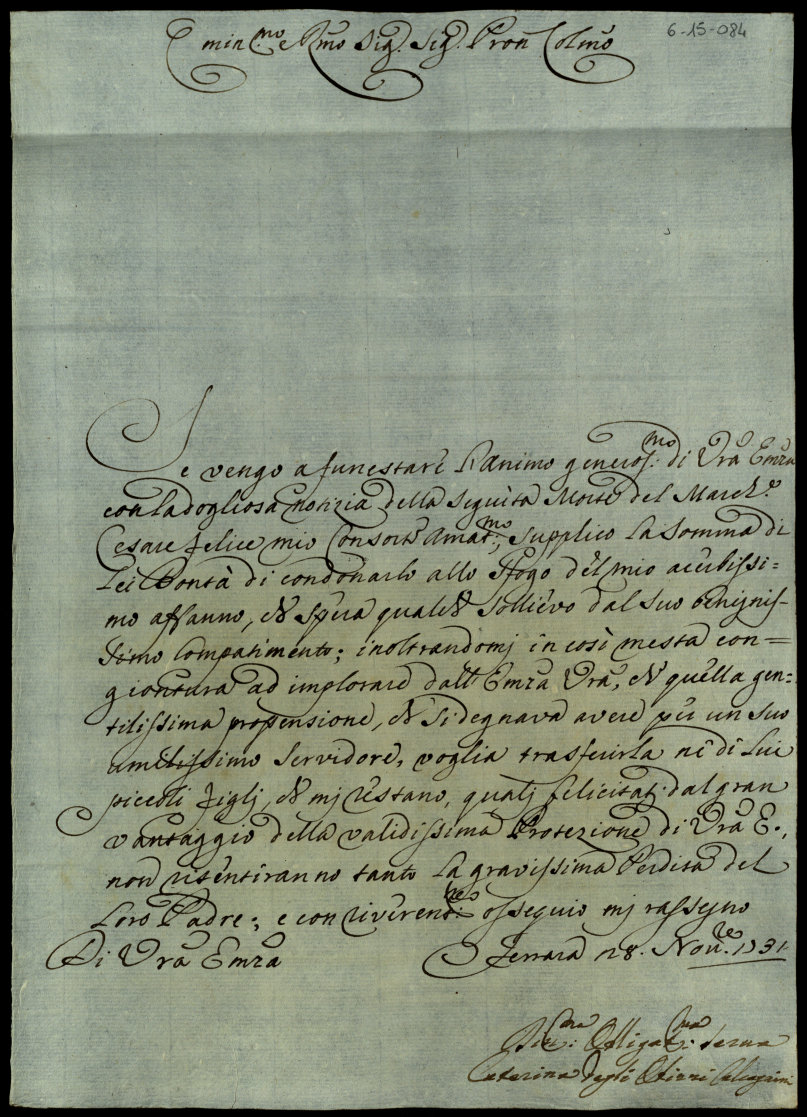 6-15-084
Emin.mo e Rmo Sig. Sig. Pron Colmo
Se vengo a funestare l'animo generos.mo di Vra Emza
con la dogliosa notizia della seguita Morte del March.e
Cesare felice mio Consorte Amat.mo, supplico la somma di
Lei Bontà di condonarlo allo sfogo del mio acerbissi=
mo affanno, che spera qualche sollievo dal suo benignis-
simo Compatimento; inoltrandomj in così mesta con=
giontura ad implorare dall' Emza Vra, che quella gen=
tilissima propensione, che si degnava avere per un suo
umilissimo servidore, voglia trasferirla ne di lui
piccoli figlj, che mj restano, qualj felicitatj dal gran
vantaggio della validissima Protezione di Vra E.,
non risentiranno tanto la gravissima Perdita del
Loro Padre; e con riverent.mo ossequio mj rassegno
Di Vra Emza Ferrara 28. Nov.re 1731
Obligat.ma Serva
Caterina degli Obizzi Calcagnini